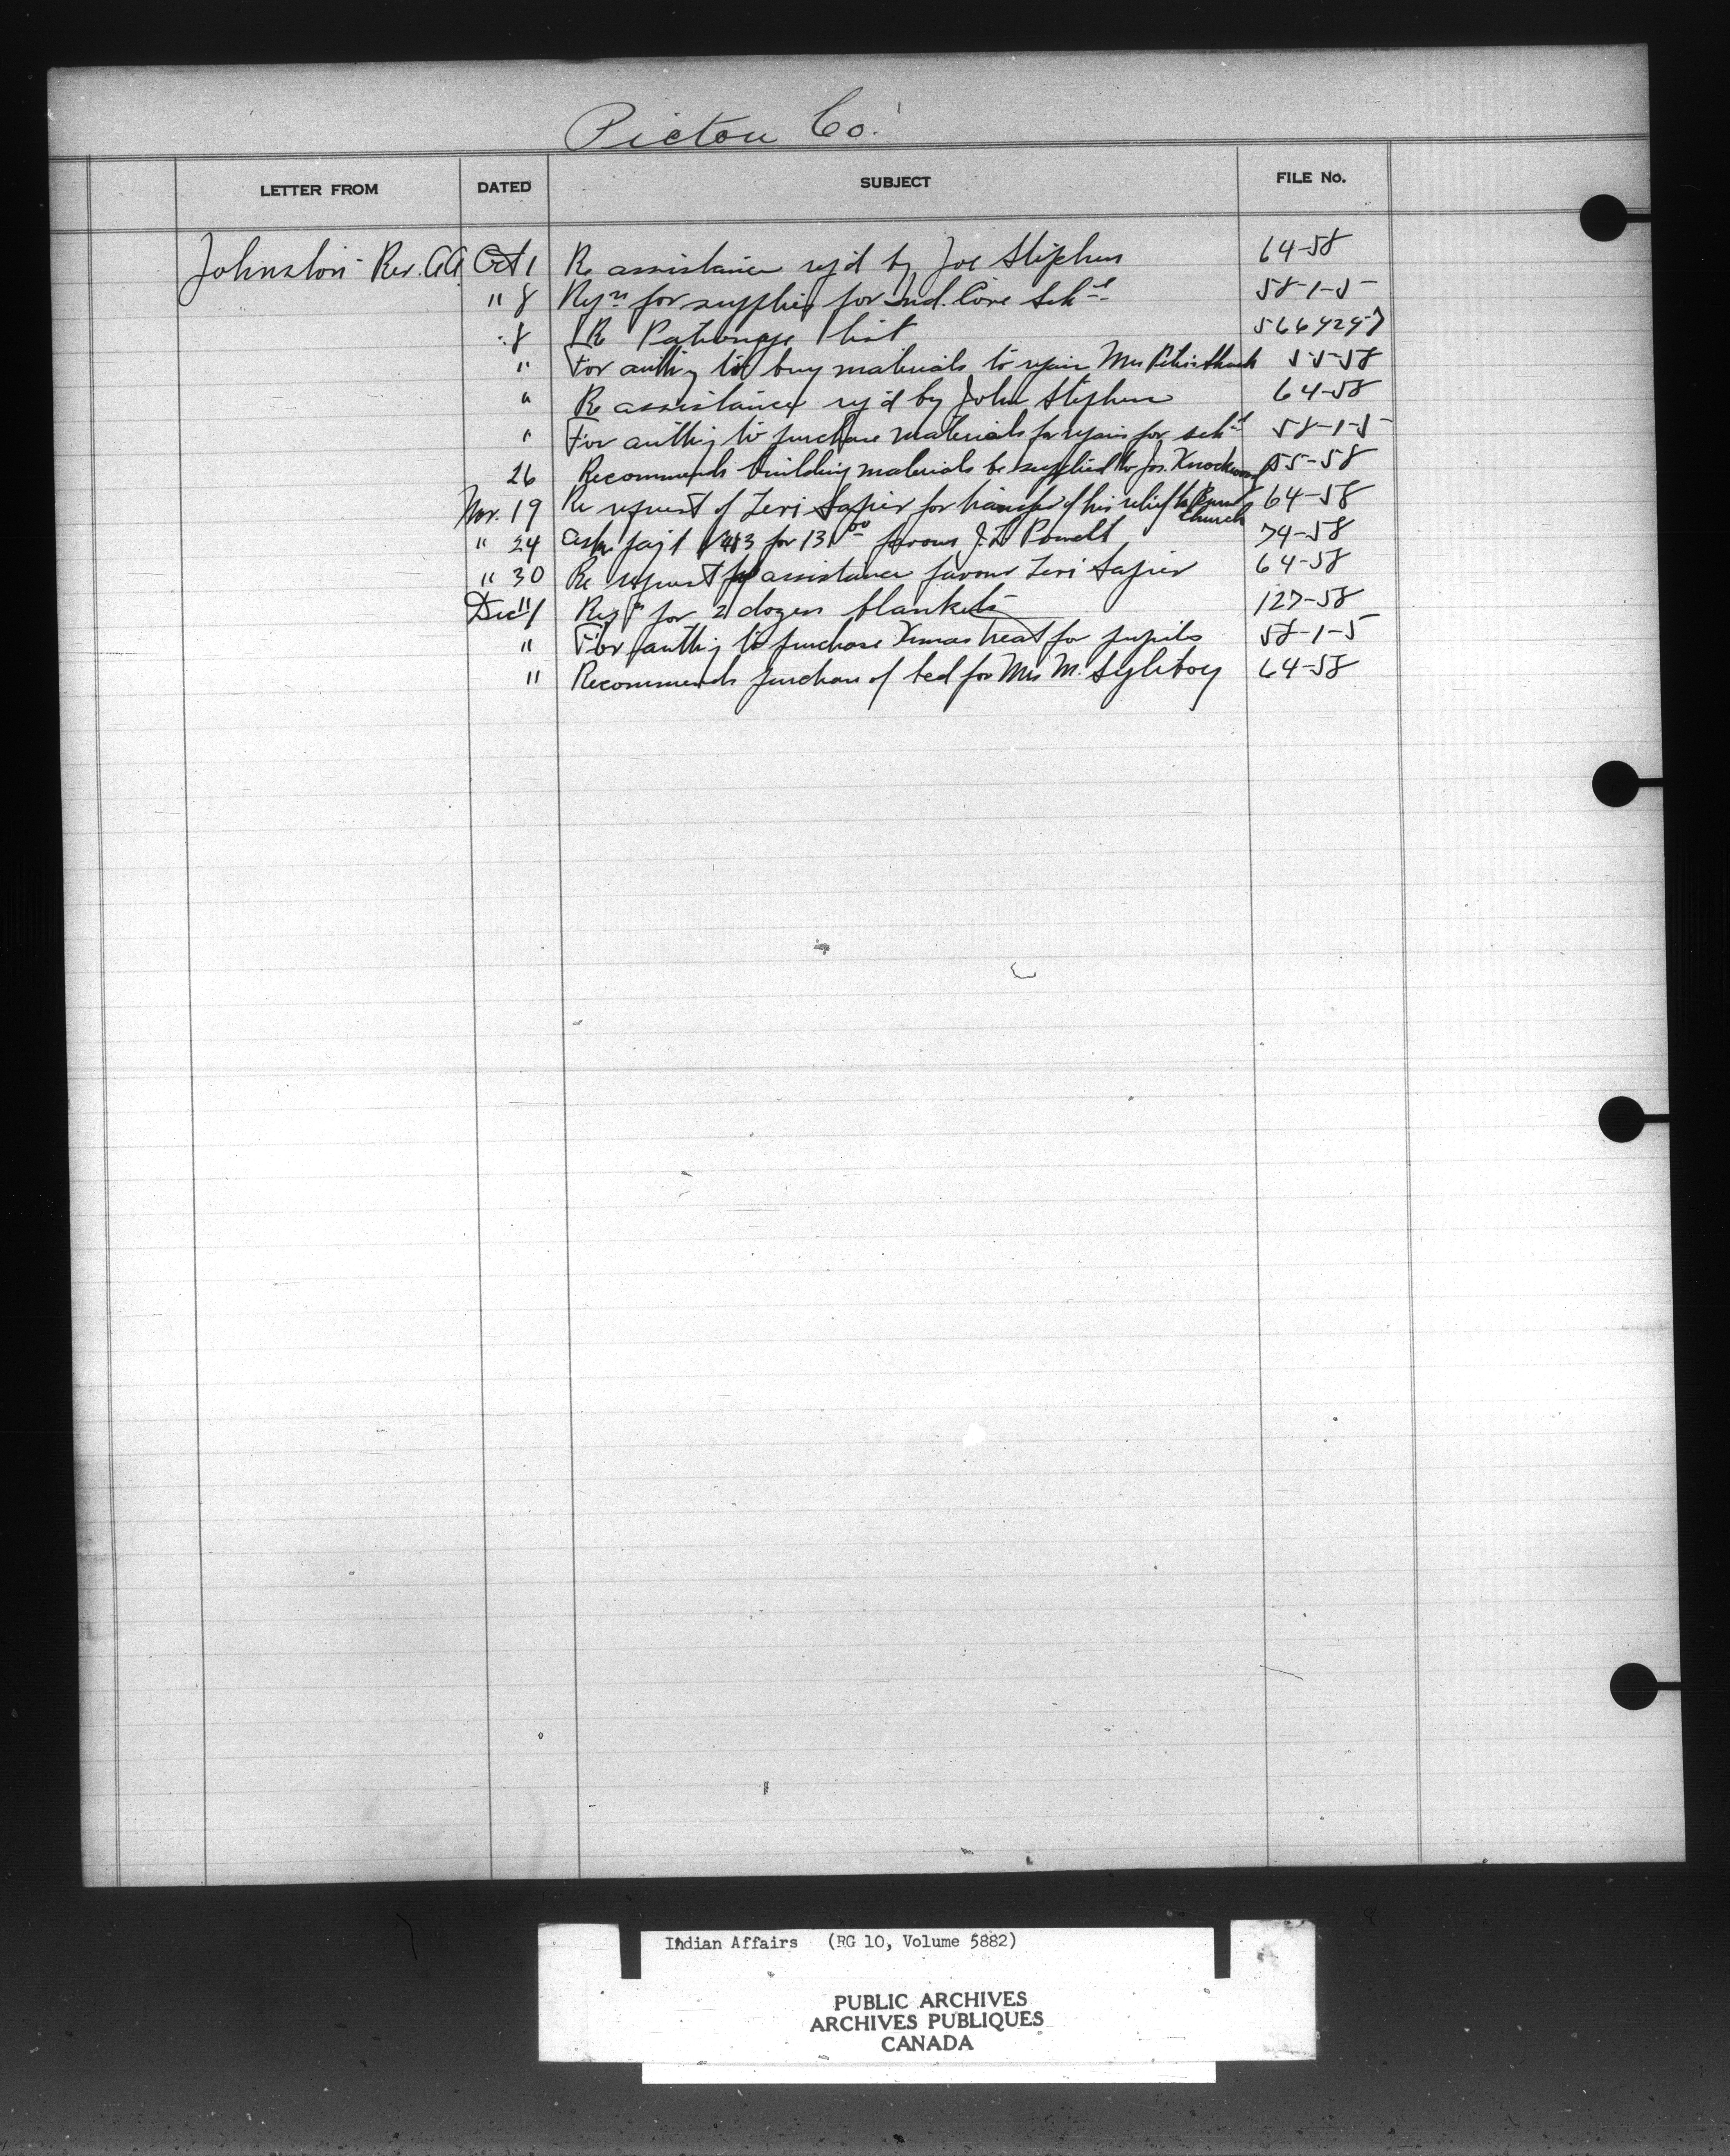 Pictou Co.
LETTER FROM DATED SUBJECT FILE No.
Johnston Rev. A A Oct 1 Re assistance rej'd by Joe Stephens 64-58
" 8 Reqn for supplies for Ind. Cove Schl 58-1-5
" 8 Re Patronage list 5664 2457
" For authy to buy materials to repair Mrs 55-58
" Re assistance rej'd by John Stephens 64-58
" For authy to purchase materials for repairs for schl 58-1-5
26 Recommends building materials be supplied to Jos. Knockwood 55-58
Nov. 19 Re request of Levi Sapier for transfer of his relief to Church 64-58
" 24 Asks paj't 483 for 13 00 favour J. L. Powell 74-58
" 30 Re request for assistance favour Levi Sapier 64-58
Dec 1 Reqn for 2 dozen blankets 127-58
" For authy to purchase Xmas treat for pupils 58-1-5
" Recommends purchase of bed for Mrs M. Syliboy 64-58
Indian Affairs (RG 10, Volume 5882)
PUBLIC ARCHIVES
ARCHIVES PUBLIQUES
CANADA